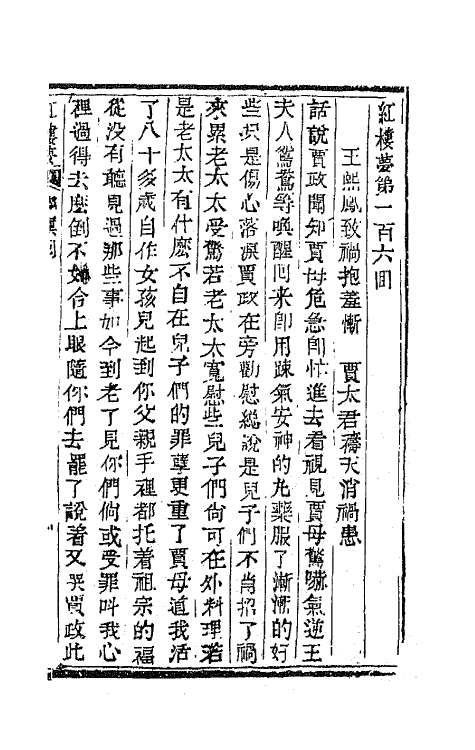 紅樓夢第一百六回
王熙鳳致禍抱羞慚　賈太君禱天消禍患
話說賈政聞知賈母危急卽忙進去看視見賈母驚嚇氣逆王
夫人鴛鴦等喚醒回來卽用疎氣安神的丸藥服了漸漸的好
些只是傷心落淚賈政在旁勸慰總說是兒子們不肖招了禍
來累老太太受驚若老太太寬慰些兒子們尙可在外料理若
是老太太有什麽不自在兒子們的罪孽更重了賈母道我活
了八十多歲自作女孩兒起到你父親手裡都托着祖宗的福
從没有聽見過那些事如今到老了見你們倘或受罪叫我心
裡過得去麽倒不如合上眼隨你們去罷了說着又哭賈政此
紅樓夢